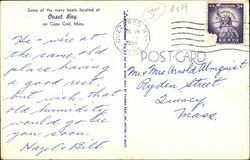 Some of the many boats located at
Onset Bay,
on Cape Cod, Mass.
Hi - we're at
the same old
place having
a good rest
but wish that
old humidity
would go. See
you soon.
Hazel + Bill
POST-CARD
Mr & Mrs Arnold Almquist
Ryden Street
Quincy
Mass.